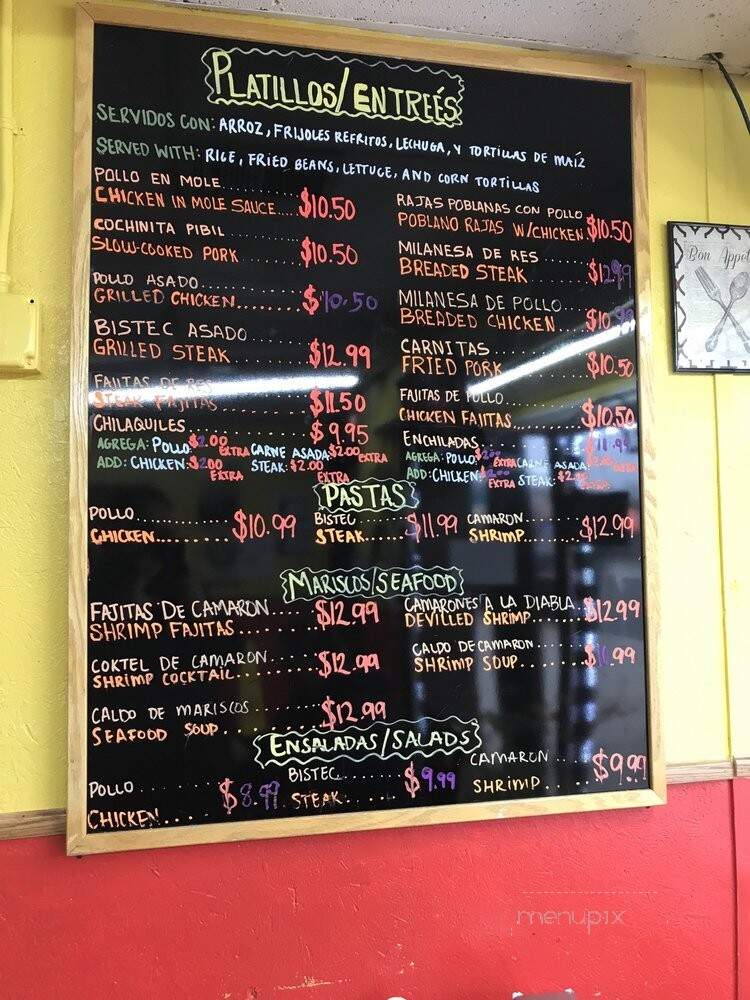 PLATILLOS/ENTREÉS
SERVIDOS CON: ARROZ, FRIJOLES REFRITOS, LECHUGA, Y TORTILLAS DE MAÍZ
SERVED WITH: RICE, FRIED BEANS, LETTUCE, AND CORN TORTILLAS
POLLO EN MOLE
CHICKEN IN MOLE SAUCE.... $10.50
COCHINITA PIBIL
SLOW-COOKED PORK $10.50
POLLO ASADO
GRILLED CHICKEN........ $10.50
BISTEC ASADO
GRILLED STEAK $12.99
FAJITAS DE RES
STEAK FAJITAS $11.50
CHILAQUILES $9.95
AGREGA: POLLO: $2.00 EXTRA CARNE ASADA: $2.00 EXTRA
ADD: CHICKEN: $2.00 EXTRA STEAK: $2.00 EXTRA
RAJAS POBLANAS CON POLLO
POBLANO RAJAS W/CHICKEN. $10.50
MILANESA DE RES
BREADED STEAK $12.99
MILANESA DE POLLO
BREADED CHICKEN $10.
CARNITAS
FRIED PORK $10.50
FAJITAS DE POLLO
CHICKEN FAJITAS $10.50
ENCHILADAS $11.95
AGREGA: POLLO: $2.00 EXTRA CARNE ASADA:
ADD: CHICKEN: EXTRA STEAK:
PASTAS
POLLO
CHICKEN........ $10.99
BISTEC
STEAK...... $11.99
CAMARON
SHRIMP....... $12.99
MARISCOS/SEAFOOD
FAJITAS DE CAMARON
SHRIMP FAJITAS $12.99
COKTEL DE CAMARON
SHRIMP COCKTAIL $12.99
CALDO DE MARISCOS
SEAFOOD SOUP $12.99
CAMARONES A LA DIABLA
DEVILLED SHRIMP $12.99
CALDO DE CAMARON
SHRIMP SOUP $11.99
ENSALADAS/SALADS
POLLO
CHICKEN.... $8.99
BISTEC
STEAK...... $9.99
CAMARON
SHRIMP $9.99
Bon Appet
menupix